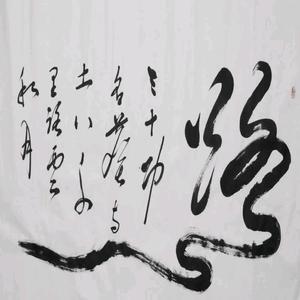 路
三十功
名塵与
土八千
里路雲
和月